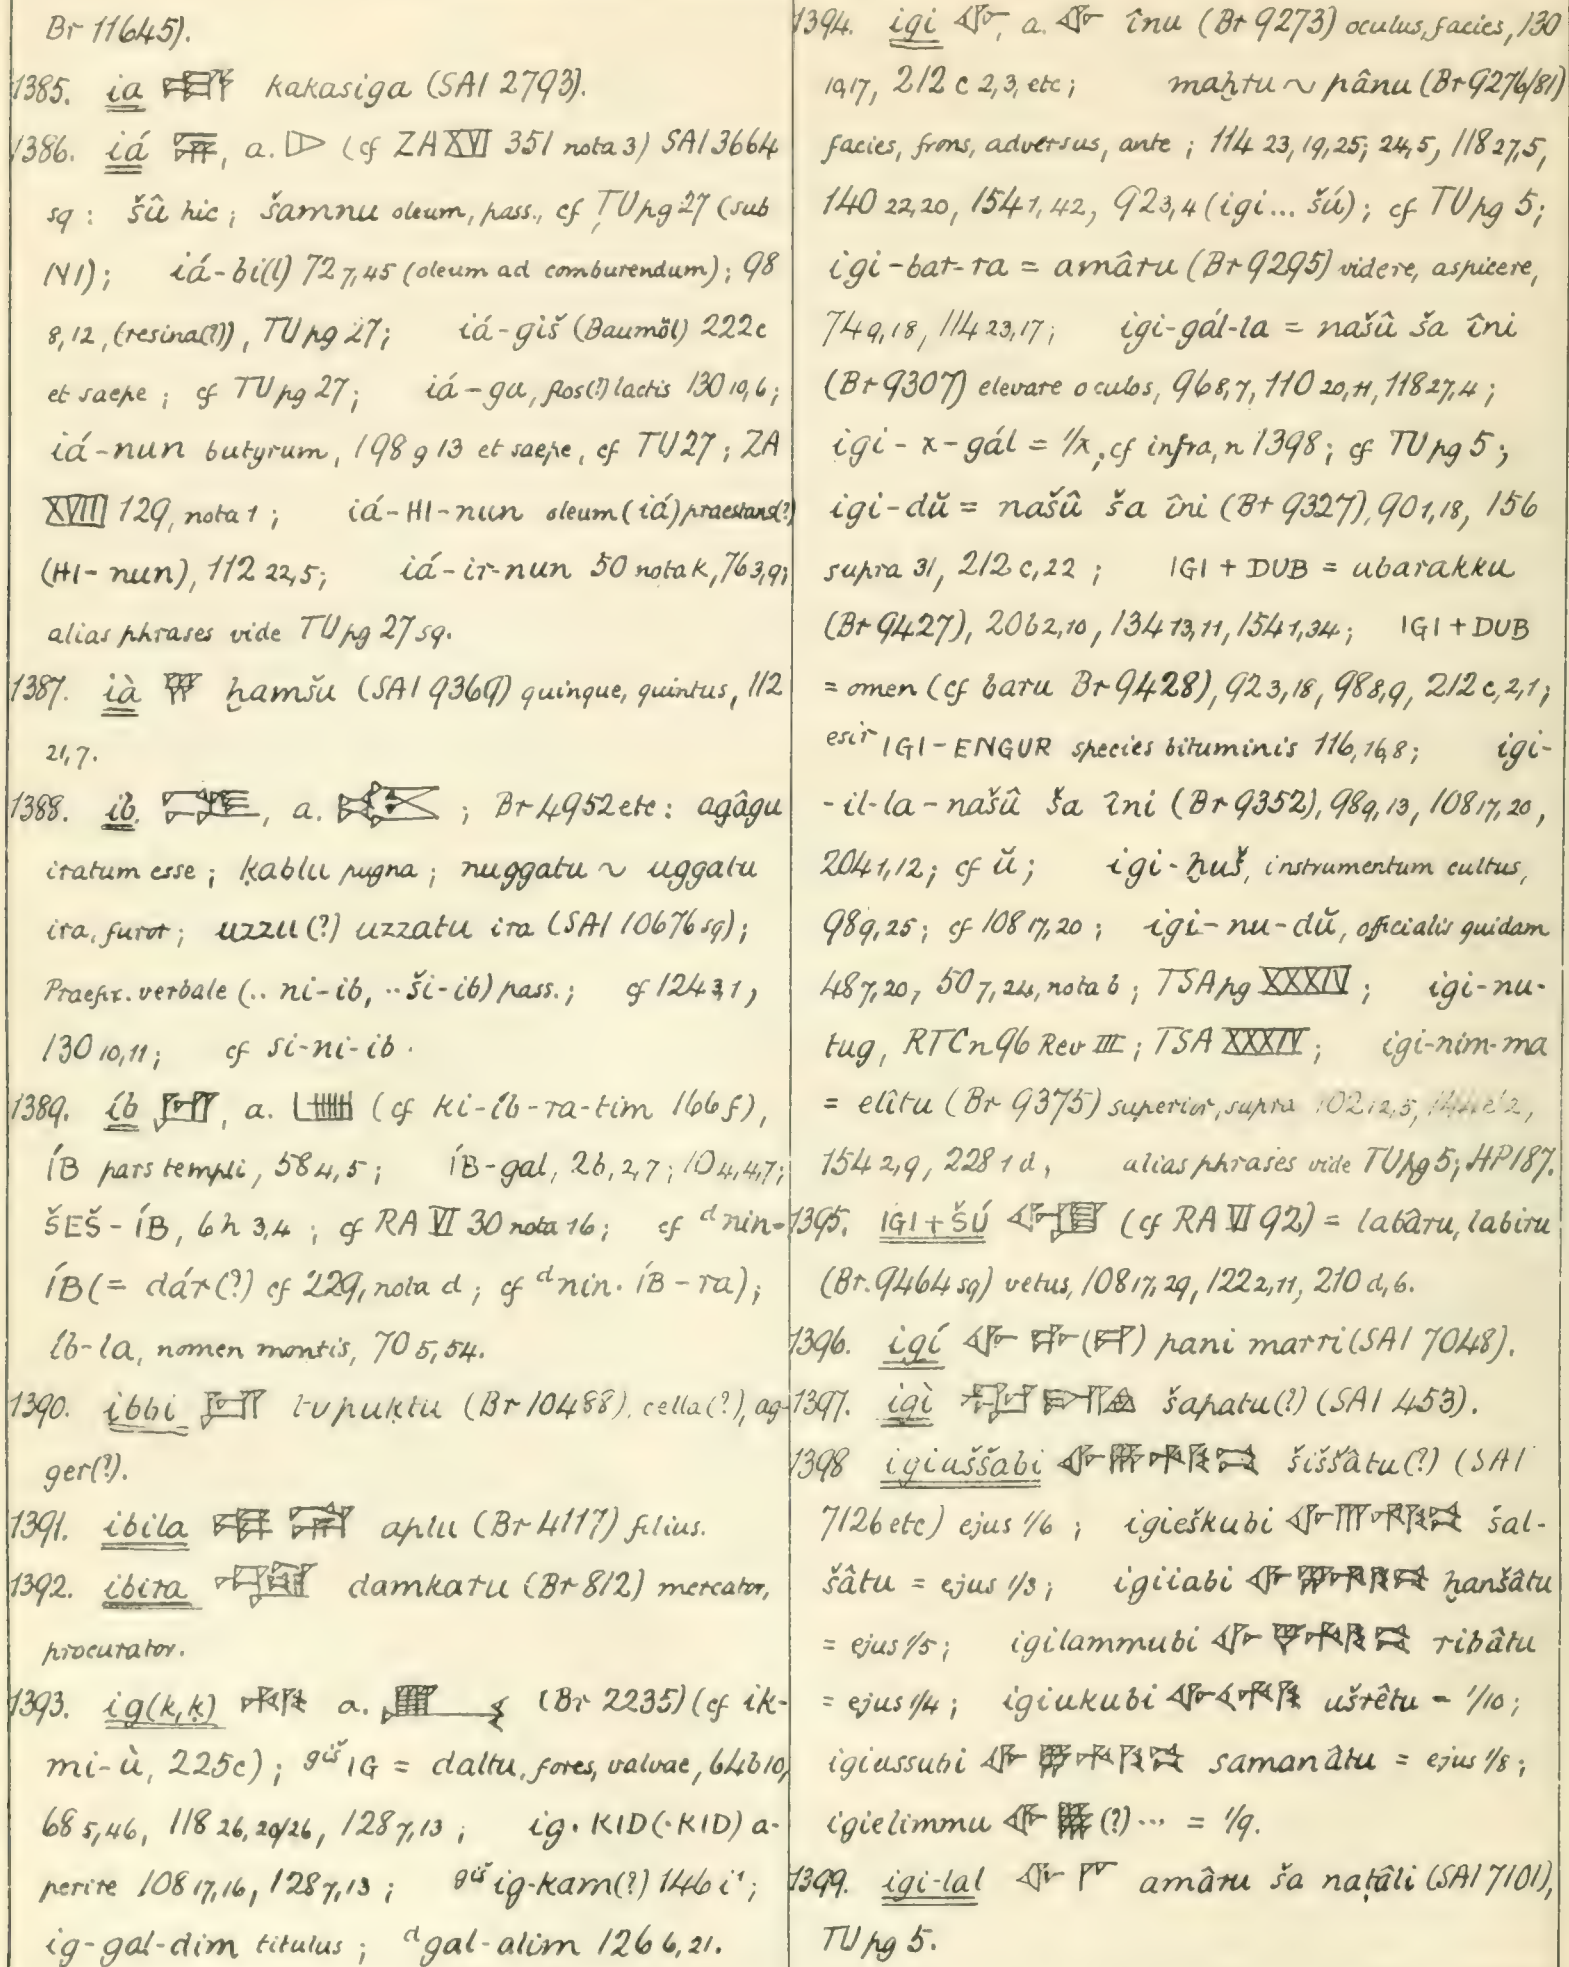 Br 11645).
1385. ia kakasiga (SAI 2793).
1386. iá , a. (cf ZA XVI 351 nota 3) SAI 3664
sq : šû hic ; šamnu oleum, pass., cf TU pg 27 (sub
NI) ; iá-bi(l) 72 7,45 (oleum ad comburendum) ; 98
8,12, (resina(?)), TU pg 27 ; iá-giš (Baumöl) 222c
et saepe ; cf TU pg 27 ; iá-ga, flos(?) lactis 130 10,6 ;
iá-nun butyrum, 198 g 13 et saepe, cf TU 27 ; ZA
XVIII 129, nota 1 ; iá-HI-nun oleum (iá) praestans(?)
(HI-nun), 112 22,5 ; iá-ir-nun 50 nota k, 76 3,9 ;
alias phrases vide TU pg 27 sq.
1387. ià ḫamšu (SAI 9369) quinque, quintus, 112
21,7.
1388. ib , a. ; Br 4952 etc : agâgu
iratum esse ; ḳablu pugna ; nuggatu ~ uggatu
ira, furor ; uzzu(?) uzzatu ira (SAI 10676 sq) ;
Praefix. verbale (.. ni-ib, .. ši-ib) pass. ; cf 124 3,1,
130 10,11 ; cf si-ni-ib.
1389. íb , a. (cf ki-íb-ra-tim 166 f),
ÍB pars templi, 58 4,5 ; ÍB-gal, 2b, 2,7 ; 10 4,4,7 ;
ŠEŠ-ÍB, 6h 3,4 ; cf RA VI 30 nota 16 ; cf d nin-
ÍB (= dár(?) cf 229, nota d ; cf d nin. ÍB-ra) ;
íb-la, nomen montis, 70 5,54.
1390. ibbi tupuḳtu (Br 10488), cella(?), ag-
ger(?).
1391. ibila aplu (Br 4117) filius.
1392. ibira damkaru (Br 812) mercator,
procurator.
1393. ig(k,ḳ) a. (Br 2235) (cf ik-
mi-ù, 225c) ; giš IG = daltu, fores, valvae, 64 b 10,
68 5,46, 118 26,20/26, 128 7,13 ; ig. KID(.KID) a-
perire 108 17,16, 128 7,13 ; giš ig-kam(?) 146 i 1 ;
ig-gal-dim titulus ; d gal-alim 126 6,21.
1394. igi , a. înu (Br 9273) oculus, facies, 130
10,17, 212 c 2,3, etc ; maḫru ~ pânu (Br 9276/81)
facies, frons, adversus, ante ; 114 23,19,25; 24,5, 118 27,5,
140 22,20, 154 1,42, 92 3,4 (igi... šú) ; cf TU pg 5 ;
igi-bar-ra = amâru (Br 9295) videre, aspicere,
74 9,18, 114 23,17 ; igi-gál-la = našû ša îni
(Br 9307) elevare oculos, 96 8,7, 110 20,11, 118 27,4 ;
igi-x-gál = 1/x, cf infra, n 1398 ; cf TU pg 5 ;
igi-dŭ = našû ša îni (Br 9327), 90 1,18, 156
supra 31, 212 c, 22 ; IGI + DUB = ubarakku
(Br 9427), 206 2,10, 134 13,11, 154 1,34 ; IGI + DUB
= omen (cf baru Br 9428), 92 3,18, 98 8,9, 212 c, 2,1 ;
esir IGI-ENGUR species bituminis 116, 16,8 ; igi-
-il-la-našû ša îni (Br 9352), 98 9,13, 108 17,20,
204 1,12 ; cf ŭ ; igi-ḫuš, instrumentum cultus,
98 9,25 ; cf 108 17,20 ; igi-nu-dŭ, officialis quidam
48 7,20, 50 7,24, nota b ; TSA pg XXXIV ; igi-nu-
tug, RTC n 96 Rev III ; TSA XXXIV ; igi-nim-ma
= elîtu (Br 9375) superior, supra 102 12,5,
154 2,9, 228 1 d, alias phrases vide TU pg 5 ; HP 187.
1395. IGI + ŠÚ (cf RA VI 92) = labâru, labiru
(Br. 9464 sq) vetus, 108 17,29, 122 2,11, 210 d, 6.
1396. igí pani marri (SAI 7048).
1397. igì šapatu(?) (SAI 453).
1398 igiaššabi šiššâtu(?) (SAI
7126 etc) ejus 1/6 ; igieškubi šal-
šâtu = ejus 1/3 ; igiiabi ḫanšâtu
= ejus 1/5 ; igilammubi ribâtu
= ejus 1/4 ; igiukubi ušrêtu = 1/10 ;
igiussubi samanâtu = ejus 1/8 ;
igielimmu (?) ... = 1/9.
1399. igi-lal amâru ša naṭâli (SAI 7101),
TU pg 5.